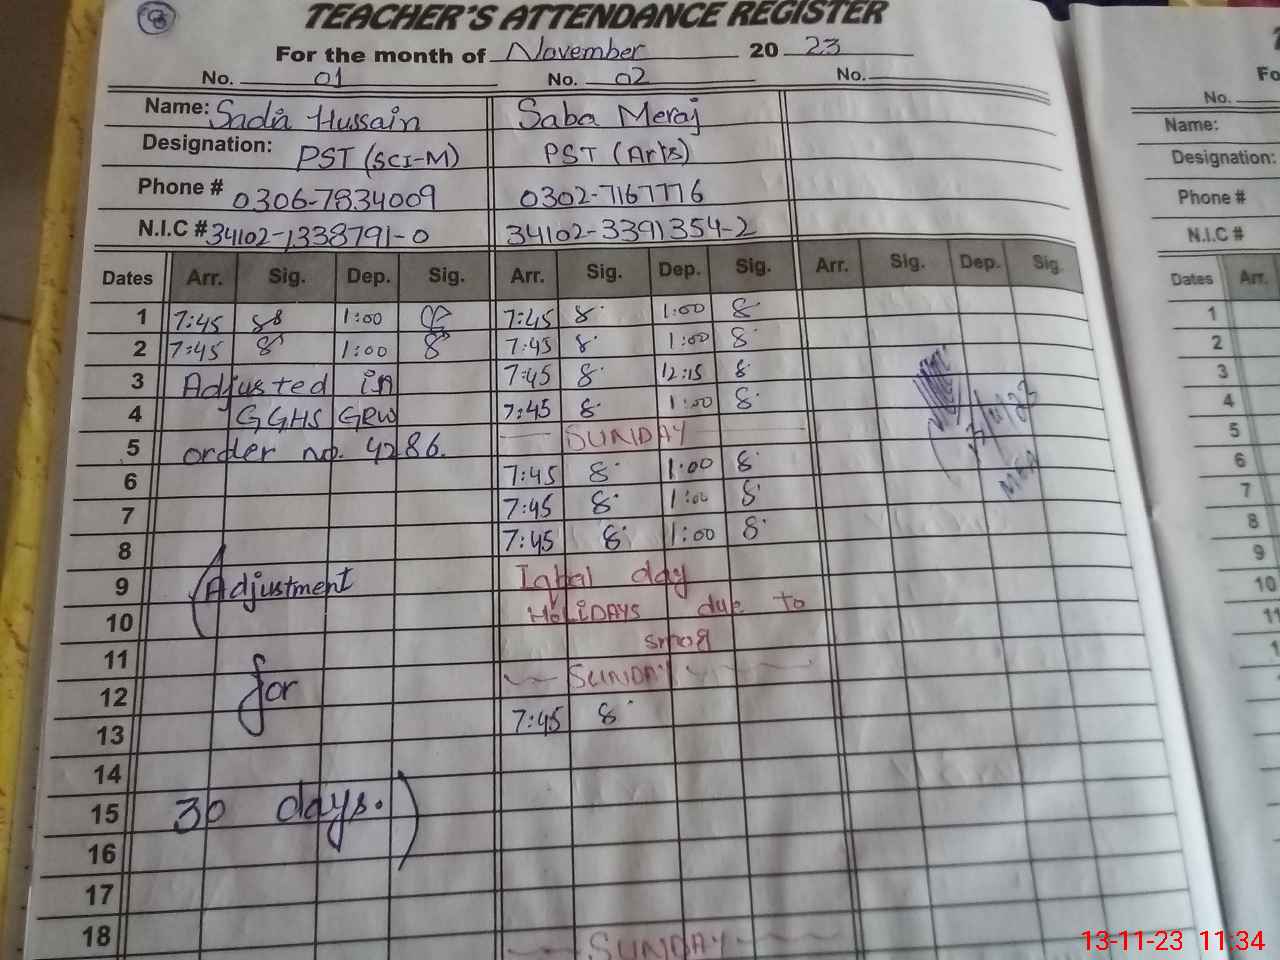 8
TEACHER'S ATTENDANCE REGISTER
For the month of November 20 23
No. 01 No. 02 No.
Name: Sadia Hussain Saba Meraj
Designation: PST (SCI-M) PST (Arts)
Phone # 0306-7834009 0302-7167776
N.I.C # 34102-1338791-0 34102-3391354-2
Dates Arr. Sig. Dep. Sig. Arr. Sig. Dep. Sig. Arr. Sig. Dep. Sig.
1 7:45 1:00 7:45 8 1:00 8
2 7:45 8 1:00 8 7:45 8 1:00 8
3 Adjusted in 7:45 8 12:15 8
4 GGHS GRW 7:45 8 1:00 8
5 order no. 4286. SUNDAY
6 7:45 8 1:00 8
7 7:45 8 1:00 8
8 7:45 8 1:00 8
9 (Adjustment Iqbal day
10 HOLIDAYS due to
11 smog
12 for SUNDAY
13 7:45 8
14
15 30 days.)
16
17
18 SUNDAY
No.
Name:
Designation:
Phone #
N.I.C #
Dates Arr.
1
2
3
4
5
6
7
8
9
10
11
13-11-23 11:34